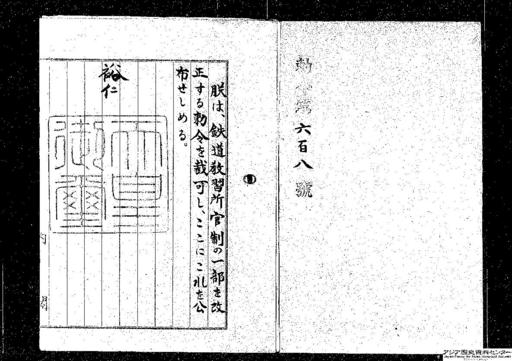 勅令第六百八號
朕は、鉄道教習所官制の一部を改
正する勅令を裁可し、ここにこれを公
布せしめる。
裕仁
天皇御璽
内閣
アジア歴史資料センター